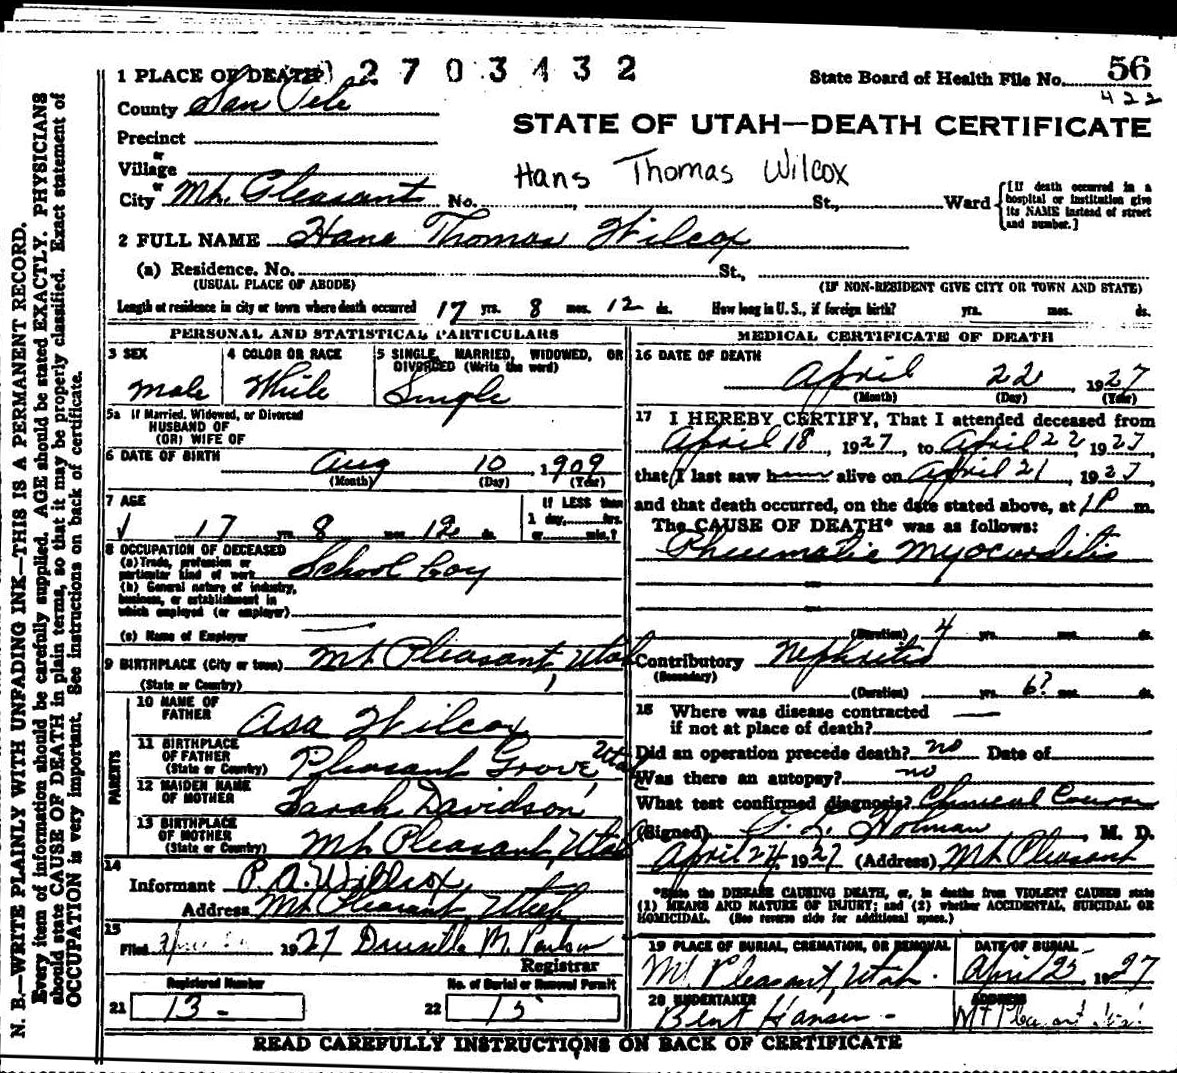 1 PLACE OF DEATH 2 7 0 3 4 3 2
State Board of Health File No. 56
422
County San Pete
STATE OF UTAH—DEATH CERTIFICATE
Precinct
or
Village
Hans Thomas Wilcox
or
City Mt. Pleasant No. , St., Ward
[If death occurred in a hospital or institution give its NAME instead of street and number.]
2 FULL NAME Hans Thomas Wilcox
(a) Residence. No. St.,
(USUAL PLACE OF ABODE) (IF NON-RESIDENT GIVE CITY OR TOWN AND STATE)
Length of residence in city or town where death occurred 17 yrs. 8 mos. 12 ds. How long in U. S., if foreign birth? yrs. mos. ds.
PERSONAL AND STATISTICAL PARTICULARS
3 SEX
Male
4 COLOR OR RACE
White
5 SINGLE, MARRIED, WIDOWED, OR DIVORCED (Write the word)
Single
5a If Married, Widowed, or Divorced
HUSBAND OF
(OR) WIFE OF
6 DATE OF BIRTH Aug 10, 1909
(Month) (Day) (Year)
7 AGE
17 yrs. 8 mos. 12 ds.
If LESS than
1 day, hrs.
or min.?
8 OCCUPATION OF DECEASED
(a) Trade, profession or
particular kind of work School boy
(b) General nature of industry,
business, or establishment in
which employed (or employer)
(c) Name of Employer
9 BIRTHPLACE (City or town) Mt Pleasant, Utah
(State or Country)
PARENTS
10 NAME OF
FATHER Asa Wilcox
11 BIRTHPLACE
OF FATHER
(State or Country) Pleasant Grove Utah
12 MAIDEN NAME
OF MOTHER Sarah Davidson
13 BIRTHPLACE
OF MOTHER
(State or Country) Mt Pleasant, Utah
14
Informant P. A. Willcox
Address Mt Pleasant, Utah
15
Filed 1927 M.
Registrar
Registered Number
21 13 -
No. of Burial or Removal Permit
22 15
MEDICAL CERTIFICATE OF DEATH
16 DATE OF DEATH
April 22, 1927
(Month) (Day) (Year)
17 I HEREBY CERTIFY, That I attended deceased from
April 18, 1927, to April 22, 1927,
that I last saw h alive on April 21, 1927,
and that death occurred, on the date stated above, at 1P m.
The CAUSE OF DEATH* was as follows:
Rheumatic Myocarditis
(Duration) 4 yrs. mos. ds.
Contributory Nephritis
(Secondary)
(Duration) yrs. 6? mos. ds.
18 Where was disease contracted
if not at place of death?
Did an operation precede death? no Date of
Was there an autopsy? no
What test confirmed diagnosis?
(Signed) Holman, M. D.
April 24, 1927 (Address) Mt Pleasant
*State the DISEASE CAUSING DEATH, or, in deaths from VIOLENT CAUSES state
(1) MEANS AND NATURE OF INJURY; and (2) whether ACCIDENTAL, SUICIDAL OR
HOMICIDAL. (See reverse side for additional space.)
19 PLACE OF BURIAL, CREMATION, OR REMOVAL
Mt Pleasant, Utah.
DATE OF BURIAL
April 25, 1927
20 UNDERTAKER
Bent Hansen -
ADDRESS
Mt Pleasant
READ CAREFULLY INSTRUCTIONS ON BACK OF CERTIFICATE
N. B.—WRITE PLAINLY WITH UNFADING INK—THIS IS A PERMANENT RECORD.
Every item of information should be carefully supplied. AGE should be stated EXACTLY. PHYSICIANS
should state CAUSE OF DEATH in plain terms, so that it may be properly classified. Exact statement of
OCCUPATION is very important. See instructions on back of certificate.